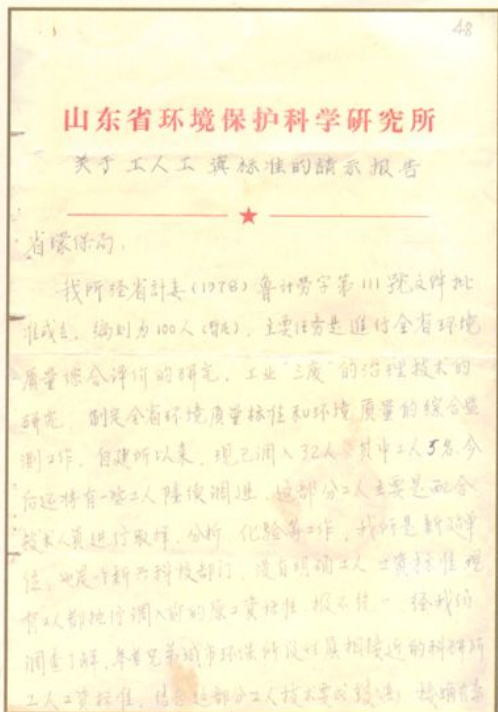 48
山东省环境保护科学研究所
关于工人工資标准的請示报告
省环保局:
我所经省計委(1978)鲁計劳字第111號文件批
准成立,编制为100人(暂定),主要任务是進行全省环境
质量综合评价的研究,工业"三废"的治理技术的
研究,制定全省环境质量标准和环境质量的综合监
测工作。自建所以来,现已调入32人,其中工人5名,今
后还将有一些工人陸续调進,这部分工人主要是配合
技术人員進行取样,分析,化验等工作,我所是新建单
位,也是个新的科技部门,没有明确工人工資标准,现
有工人都执行调入前的原工資标准,极不统一,经我们
调查了解,参照兄弟城市环保所及性质相接近的科研所
工人工資标准,结合这部分工人技术要求较高,